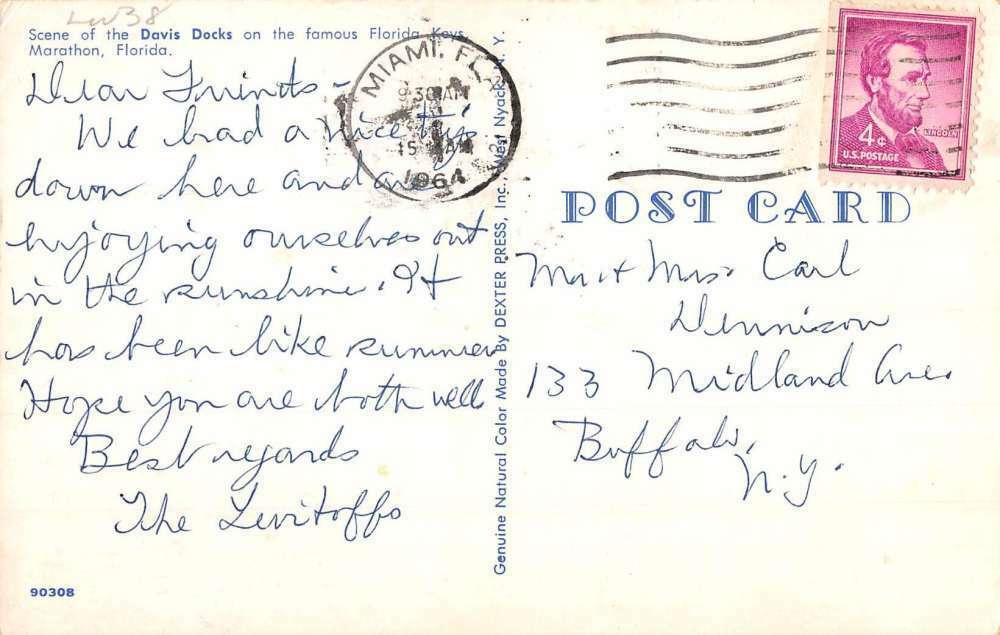 LW38
Scene of the Davis Docks on the famous Florida Keys
Marathon, Florida.
Dear Friends –
We had a nice trip
down here and are
enjoying ourselves out
in the sunshine. It
has been like summer
Hope you are both well
Best regards
The Levitoffs
90308
Genuine Natural Color Made By DEXTER PRESS, Inc. West Nyack, N. Y.
MIAMI, FL
30 AM
15
1964
4¢
LINCOLN
U.S. POSTAGE
POST CARD
Mr + Mrs. Carl
Dennison
133 Midland Ave.
Buffalo,
N.Y.